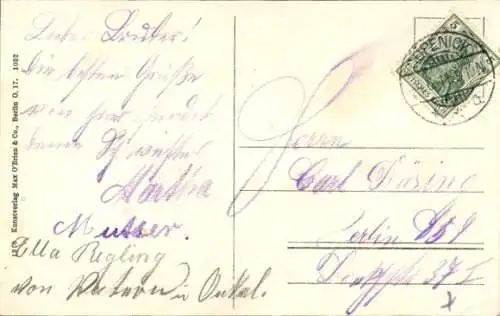 Lieber Bruder!
Die besten Grüße
von hier sendet
deine Schwester
Martha
Mutter.
Ella Regling
von Vatern u Onkel.
Kunstverlag Max O'Brien & Co., Berlin O. 17. 1022
CÖPENICK
5
Herrn
Carl
Berlin
37 I